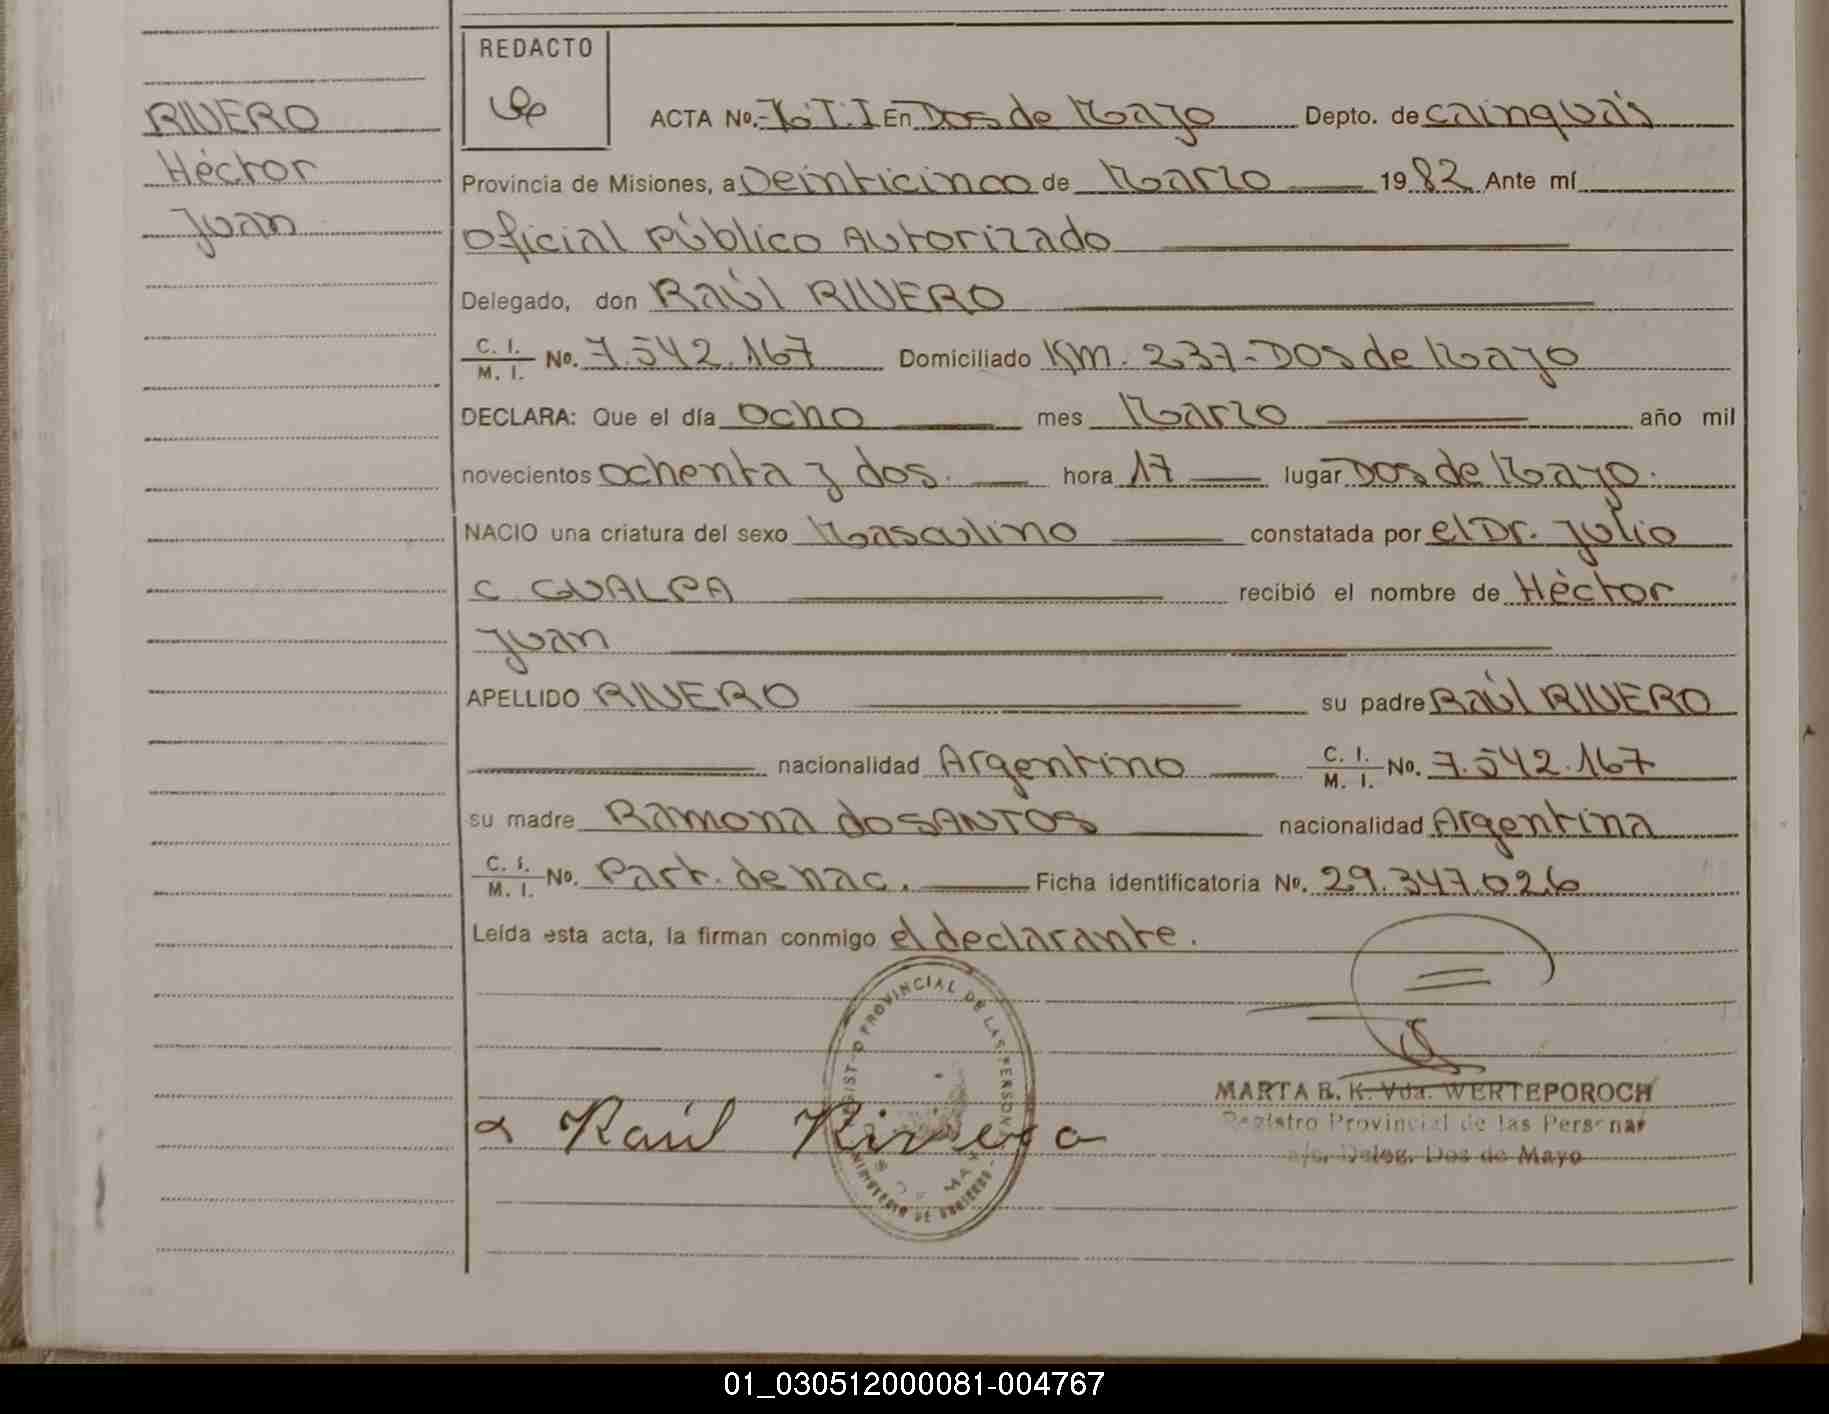 REDACTO
RIVERO
Héctor
Juan
ACTA No.- En Dos de Mayo Depto. de Cainguás
Provincia de Misiones, a Veinticinco de Marzo 1982 Ante mí
Oficial Público Autorizado
Delegado, don Raúl RIVERO
C. I. M. I. No. 7.542.167 Domiciliado Km. 237-Dos de Mayo
DECLARA: Que el día ocho mes Marzo año mil
novecientos ochenta y dos. hora 17 lugar Dos de Mayo.
NACIO una criatura del sexo Masculino constatada por el Dr. Julio
C. GUALPA recibió el nombre de Héctor
Juan
APELLIDO RIVERO su padre Raúl RIVERO
nacionalidad Argentino C. I. M. I. No. 7.542.167
su madre Ramona do SANTOS nacionalidad Argentina
C. I. M. I. No. Part. de nac. Ficha identificatoria No. 29.347.026
Leída esta acta, la firman conmigo el declarante.
PROVINCIAL DE LAS PERSONAS
Raúl Rivero
MARTA R. K. Vda. WERTEPOROCH
Registro Provincial de las Personas
a/c. Deleg. Dos de Mayo
01_030512000081-004767